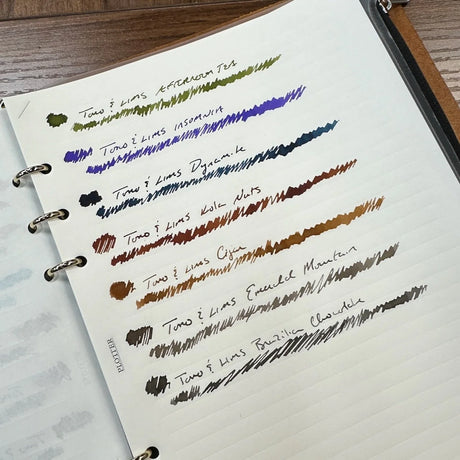 Tono & Lims Afternoon Tea
Tono & Lims Insomnia
Tono & Lims Dynamite
Tono & Lims Kola Nuts
Tono & Lims
Tono & Lims Emerald Mountain
Tono & Lims Brazilian Chocolate
PLOTTER